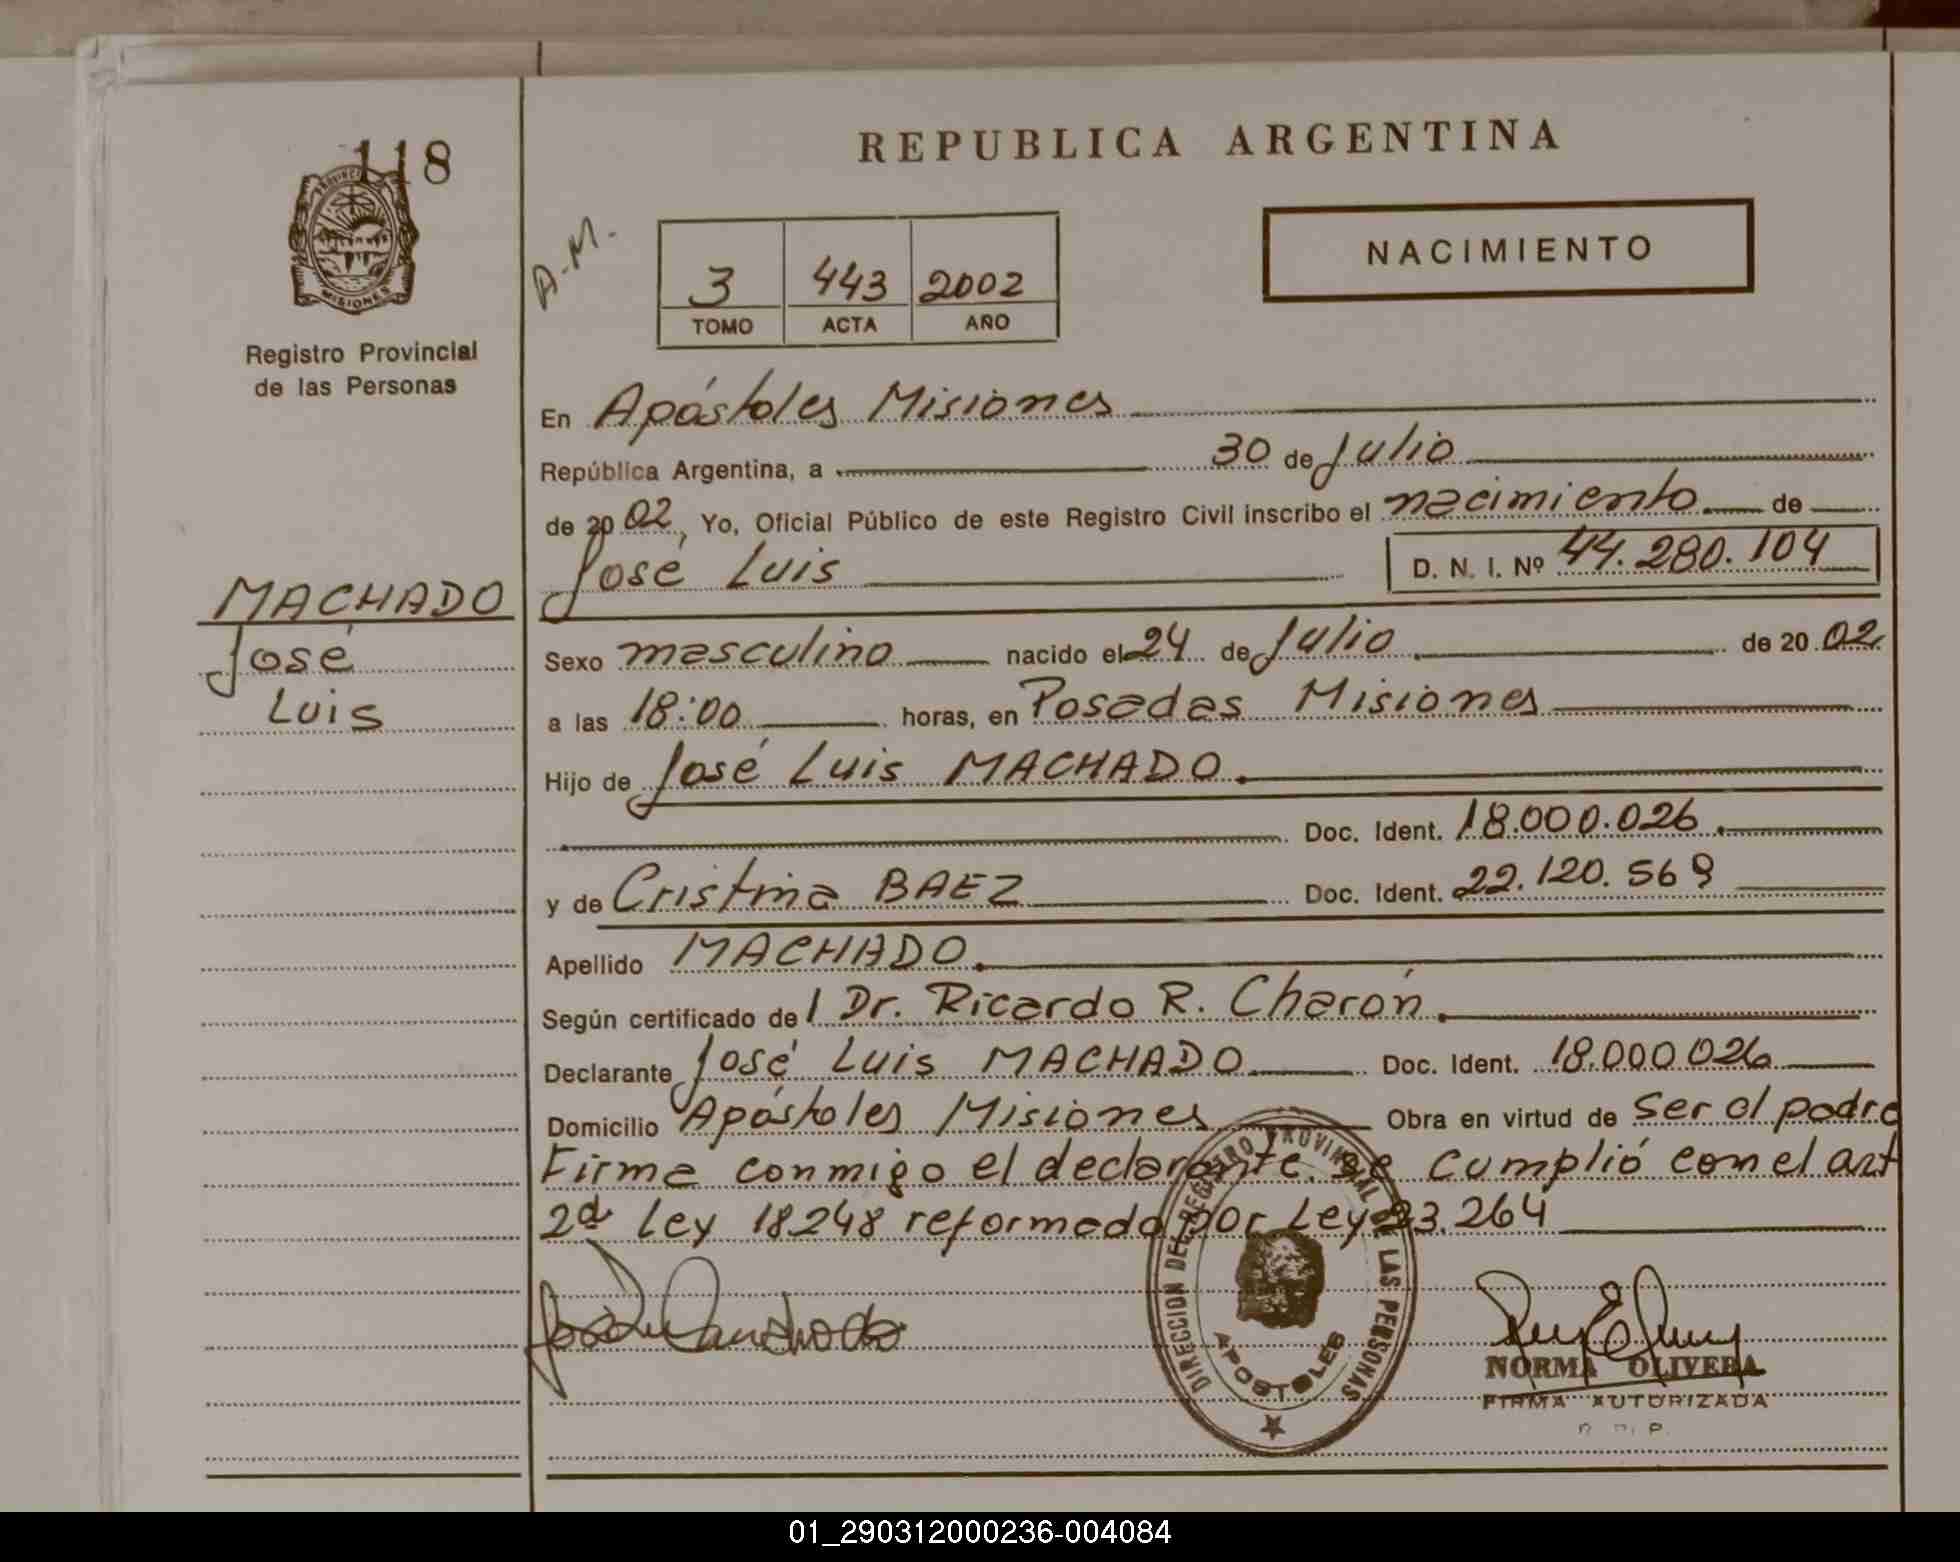 118
PROVINCIA
MISIONES
Registro Provincial
de las Personas
MACHADO
José
Luis
REPUBLICA ARGENTINA
A.M.
3 443 2002
TOMO ACTA AÑO
NACIMIENTO
En Apóstoles Misiones
República Argentina, a 30 de Julio
de 2002, Yo, Oficial Público de este Registro Civil inscribo el nacimiento de
José Luis D. N. I. Nº 44.280.104
Sexo masculino nacido el 24 de Julio de 2002.
a las 18:00 horas, en Posadas Misiones
Hijo de José Luis MACHADO
Doc. Ident. 18.000.026
y de Cristina BAEZ Doc. Ident. 22.120.569
Apellido MACHADO
Según certificado del Dr. Ricardo R. Charón
Declarante José Luis MACHADO Doc. Ident. 18.000.026
Domicilio Apóstoles Misiones Obra en virtud de Ser el padre
Firma conmigo el declarante. se cumplió con el art
2d Ley 18248 reformado por Ley 23.264
DIRECCION DEL REGISTRO PROVINCIAL DE LAS PERSONAS
APOSTOLES
NORMA OLIVERA
FIRMA AUTORIZADA
01_290312000236-004084